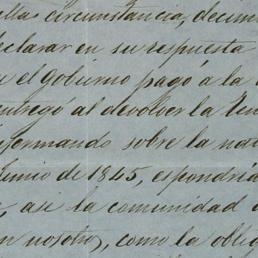 ellas circunstancia, decim
declarar en su respuesta
e el Gobierno pagó a la
entregó al devolver la
nformando sobre la nat
Junio de 1845, espondria
, asi la comunidad
n nosotro), como la oblig